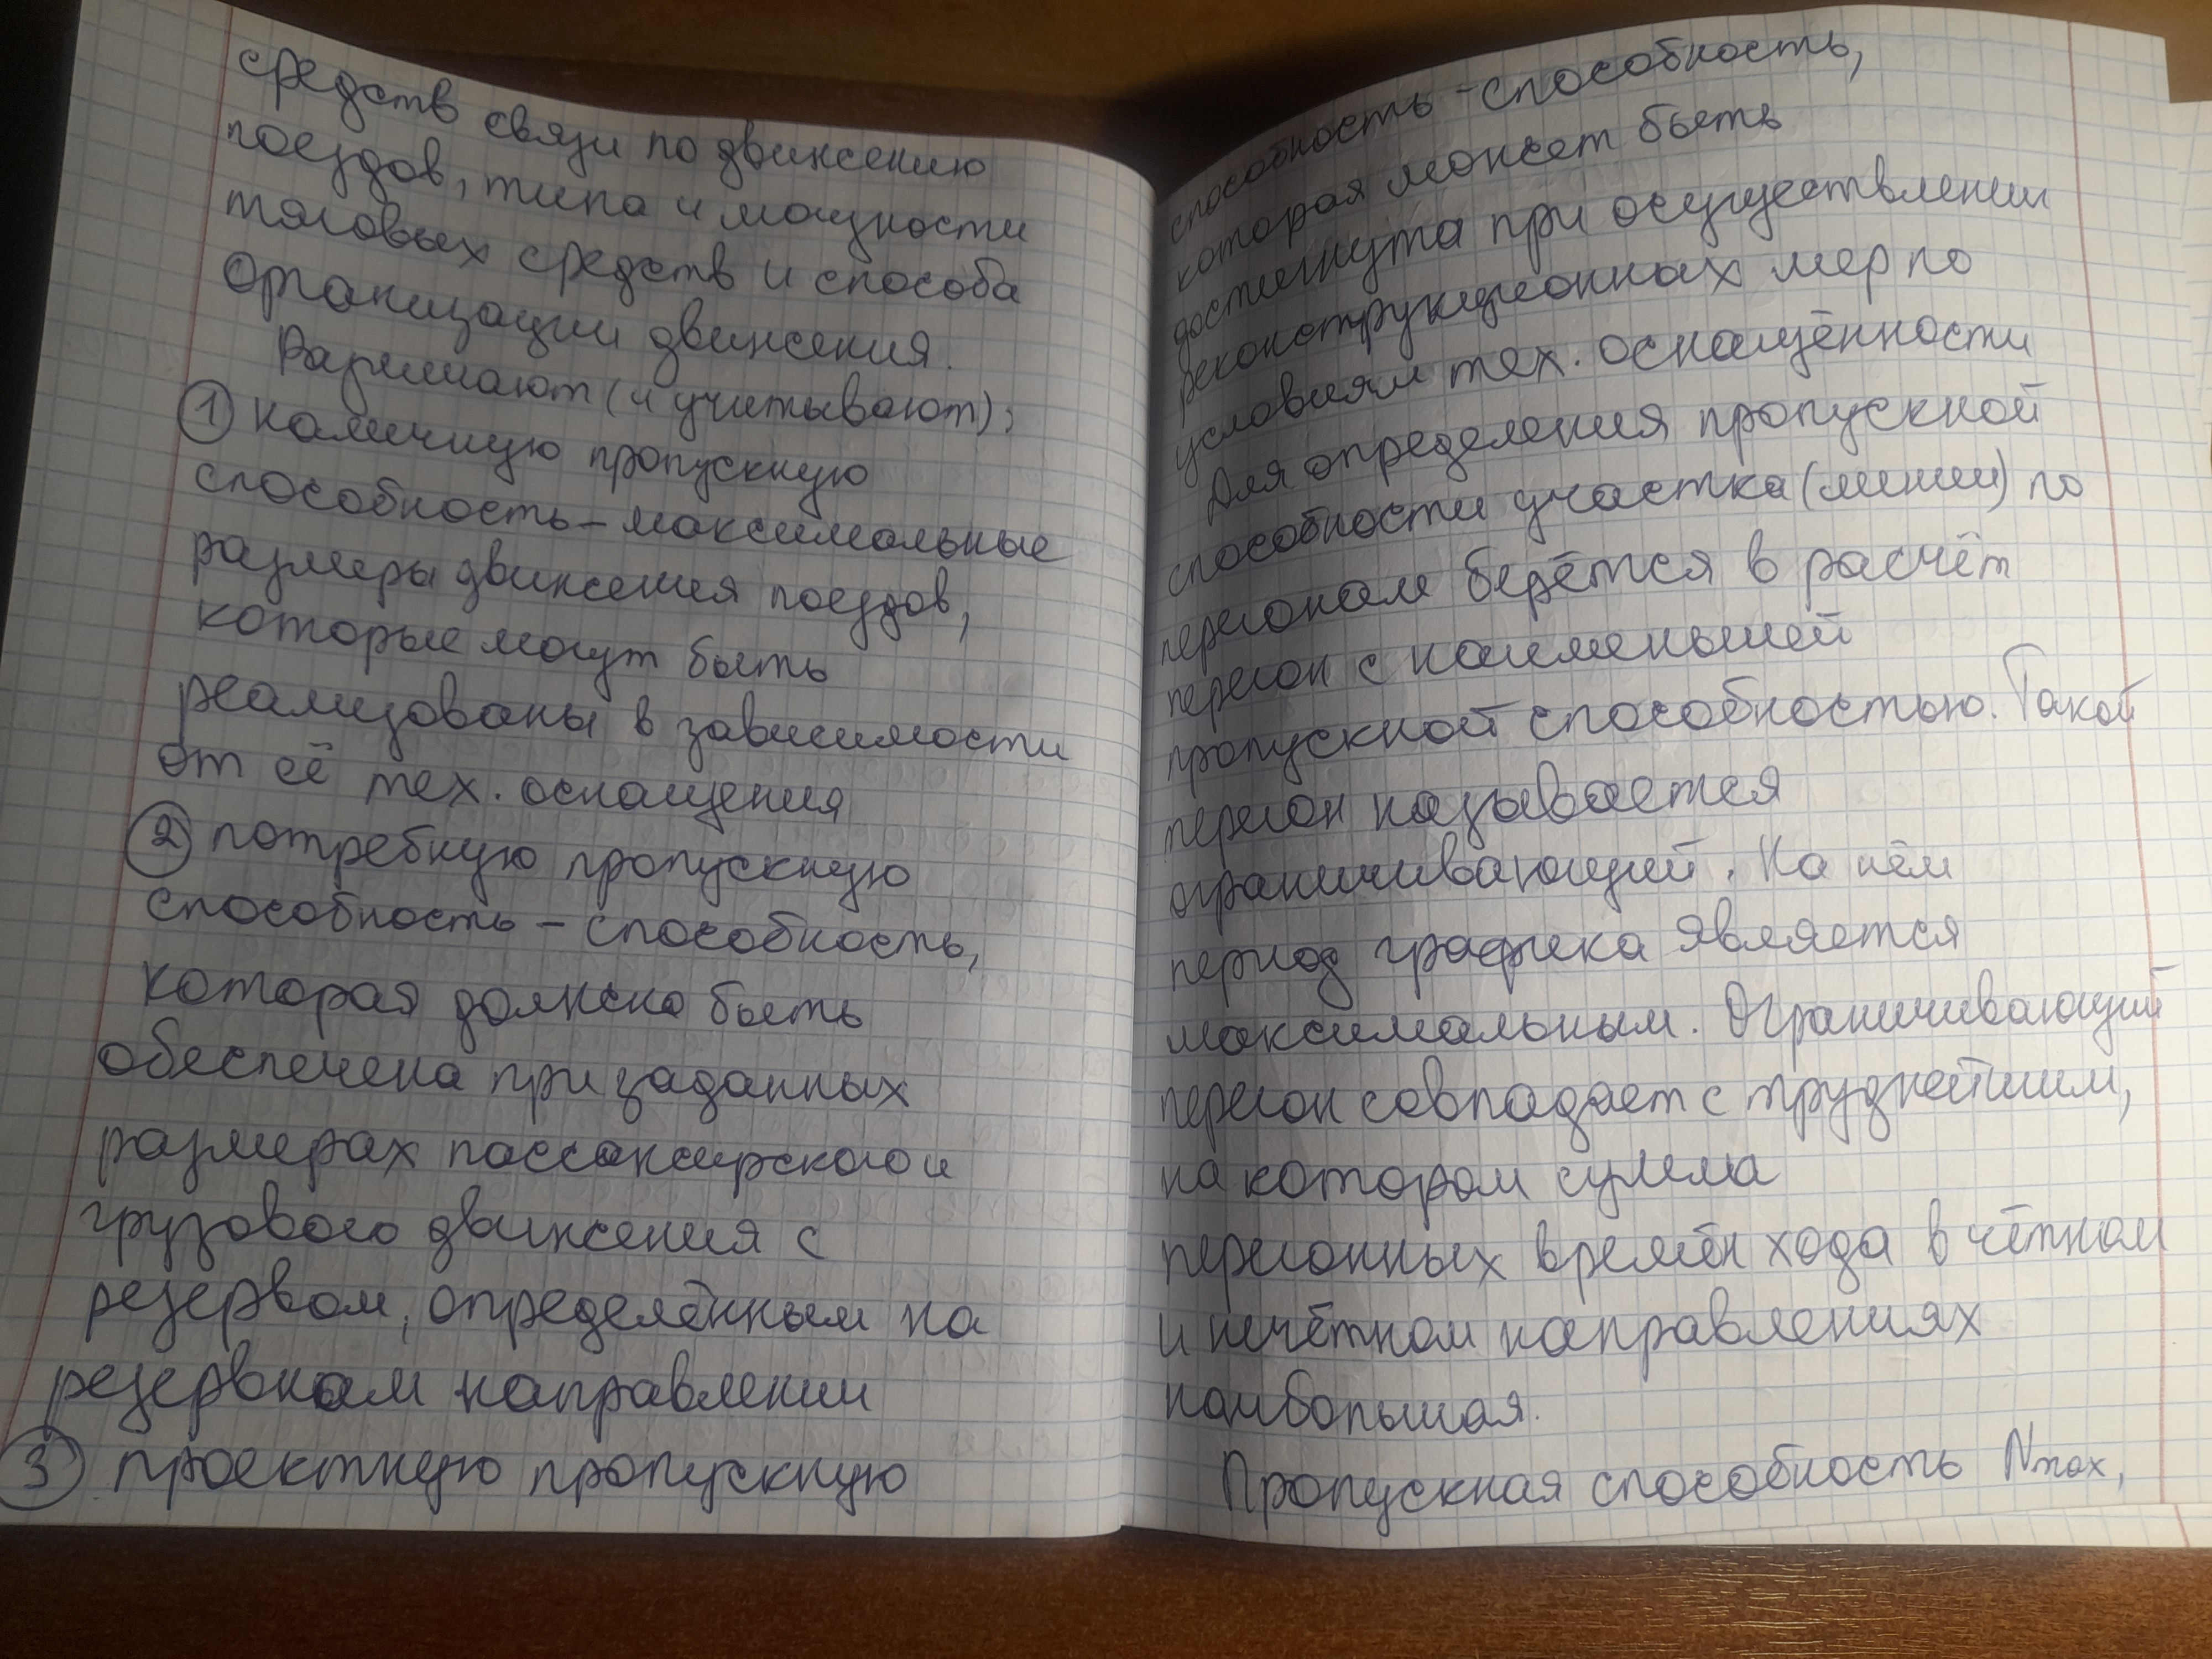 средств связи по движению
поездов, типа и мощности
тяговых средств и способа
организации движения.
Различают (и учитывают):
① наличную пропускную
способность – максимальные
размеры движения поездов,
которые могут быть
реализованы в зависимости
от её тех. оснащения
② потребную пропускную
способность – способность,
которая должна быть
обеспечена при заданных
размерах пассажирского и
грузового движения с
резервом, определённым на
резервном направлении
③ проектную пропускную
способность – способность,
которая может быть
достигнута при осуществлении
реконструкционных мер по
условиям тех. оснащённости
Для определения пропускной
способности участка (линии) по
перегонам берётся в расчёт
перегон с наименьшей
пропускной способностью. Такой
перегон называется
ограничивающий. На нём
период графика является
максимальным. Ограничивающий
перегон совпадает с труднейшим,
на котором сумма
перегонных времён хода в чётном
и нечётном направлениях
наибольшая.
Пропускная способность Nmax,